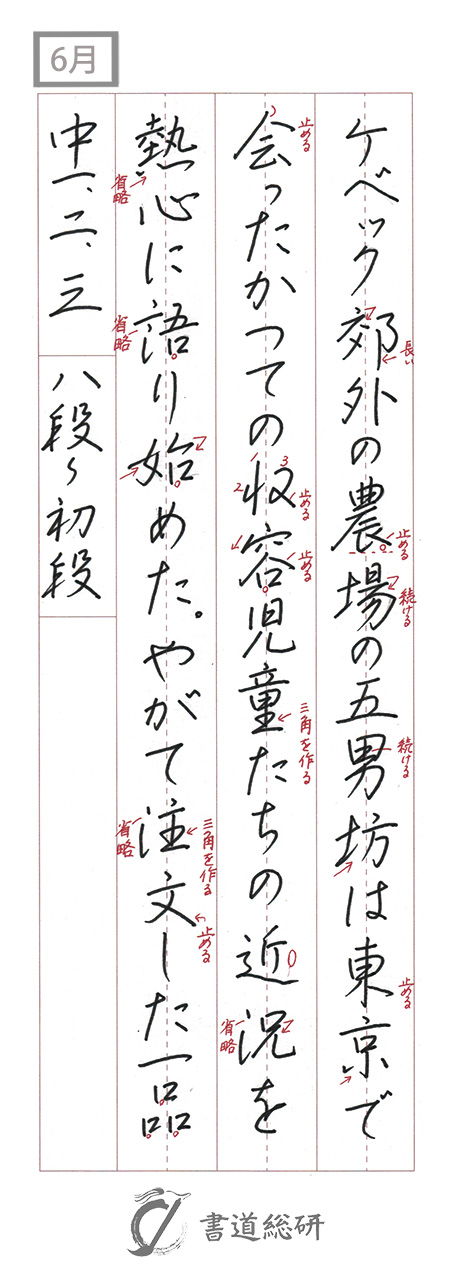 6月
ケベック郊外の農場の五男坊は東京で
会ったかつての収容児童たちの近況を
熱心に語り始めた。やがて注文した一品
中一、二、三
八段〜初段
長い
止める
続ける
続ける
止める
止める
1
2
3
止める
止める
三角を作る
省略
省略
省略
三角を作る
止める
省略
書道総研